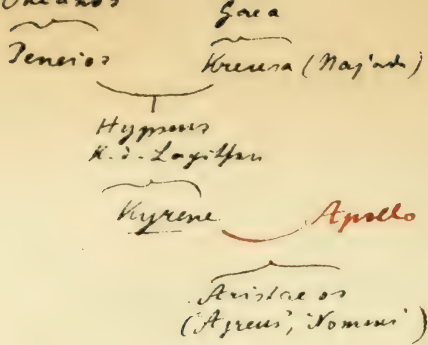 Okeanos Gaea
Peneios Kreusa (Najade)
Hypseus
K. d. Lapithen
Kyrene Apollo
Aristaeos
(Agreus, Nomius)